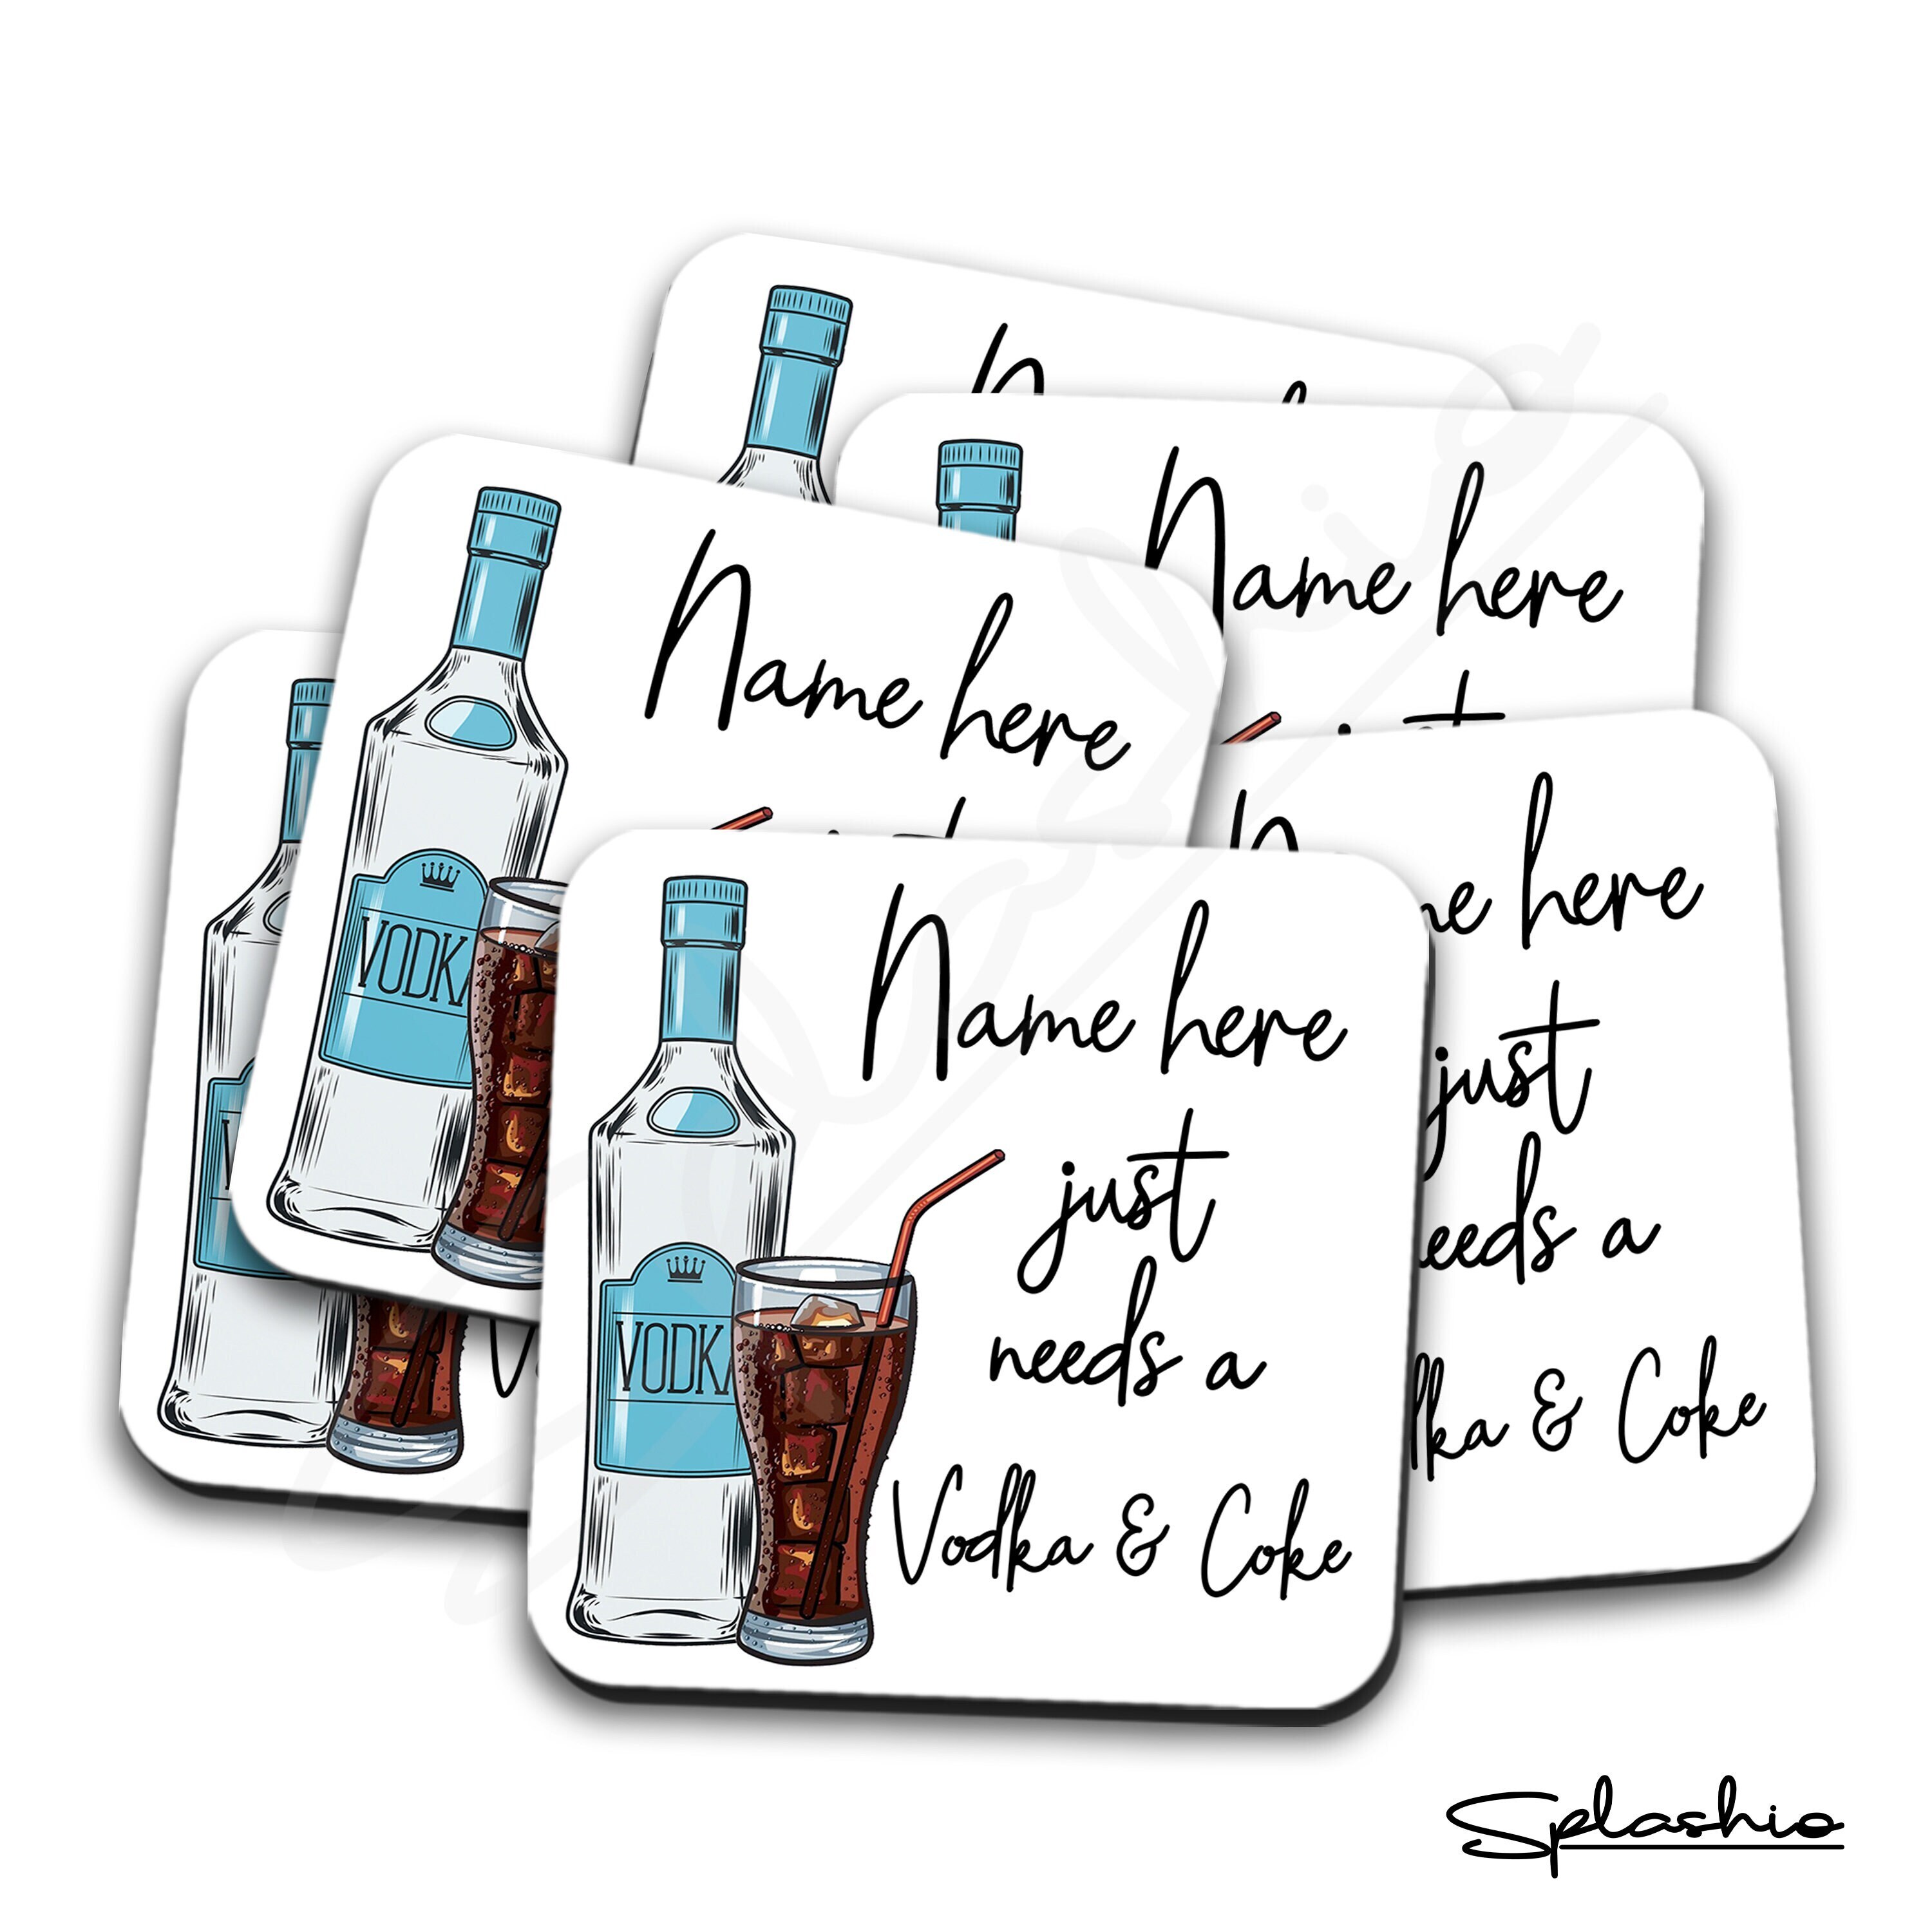 Name here
Name here
just
needs a
Vodka & Coke
VODKA
Name here
VODKA
Name here
just
needs a
Vodka & Coke
VODKA
Splashio
Splashio